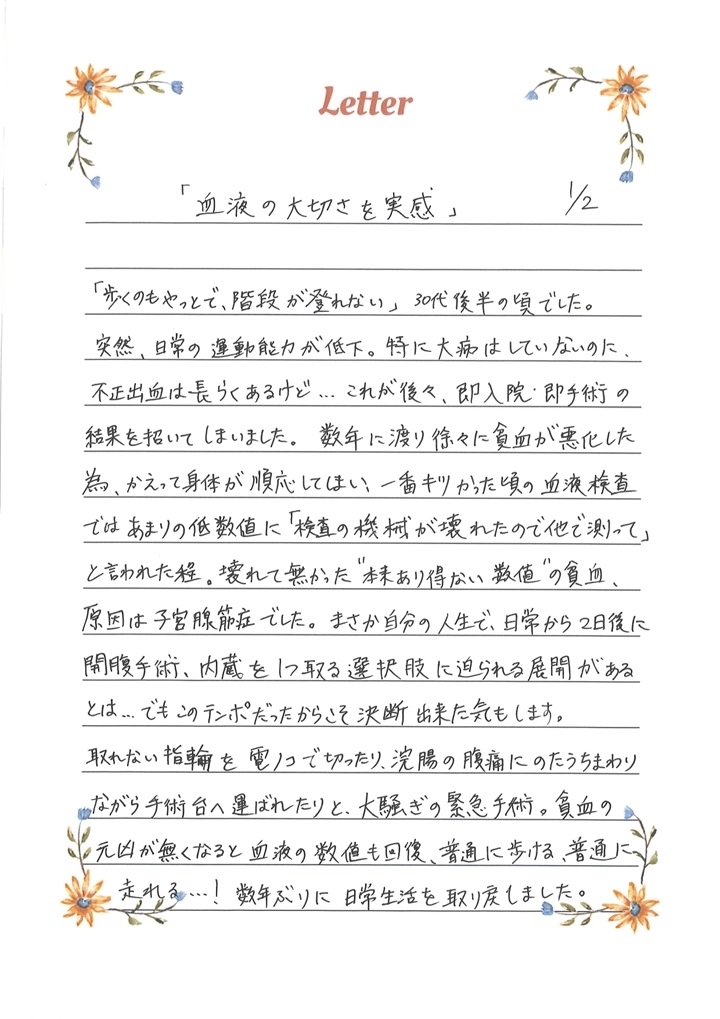 Letter
「血液の大切さを実感」 1/2
「歩くのもやっとで、階段が登れない」30代後半の頃でした。
突然、日常の運動能力が低下。特に大病はしていないのに、
不正出血は長らくあるけど…これが後々、即入院・即手術の
結果を招いてしまいました。数年に渡り徐々に貧血が悪化した
為、かえって身体が順応してしまい、一番キツかった頃の血液検査
ではあまりの低数値に「検査の機械が壊れたので他で測って」
と言われた程。壊れて無かった"本来あり得ない数値"の貧血、
原因は子宮腺筋症でした。まさか自分の人生で、日常から2日後に
開腹手術、内蔵を1つ取る選択肢に迫られる展開がある
とは…でもこのテンポだったからこそ決断出来た気もします。
取れない指輪を電ノコで切ったり、浣腸の腹痛にのたうちまわり
ながら手術台へ運ばれたりと、大騒ぎの緊急手術。貧血の
元凶が無くなると血液の数値も回復、普通に歩ける、普通に
走れる…!数年ぶりに日常生活を取り戻しました。